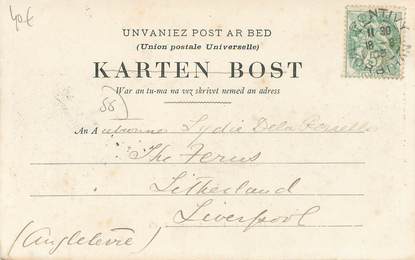 40€
UNVANIEZ POST AR BED
(Union postale Universelle)
KARTEN BOST
War an tu-ma na vez skrivet nemed an adress
(56)
An A
Lydie
The Ferns
Litherland
Liverpool
(Angleterre)
PONTIVY